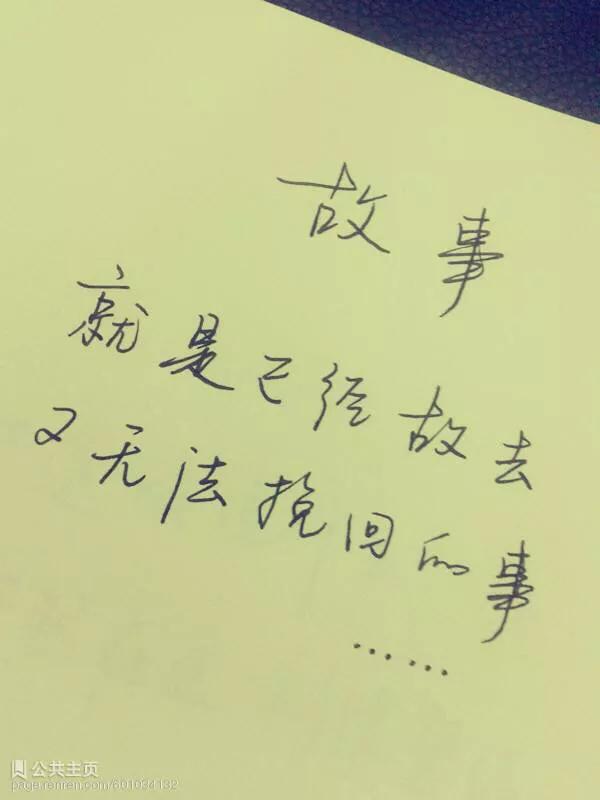 故事
就是已经故去
又无法挽回的事
……
公共主页
page.renren.com/601034132